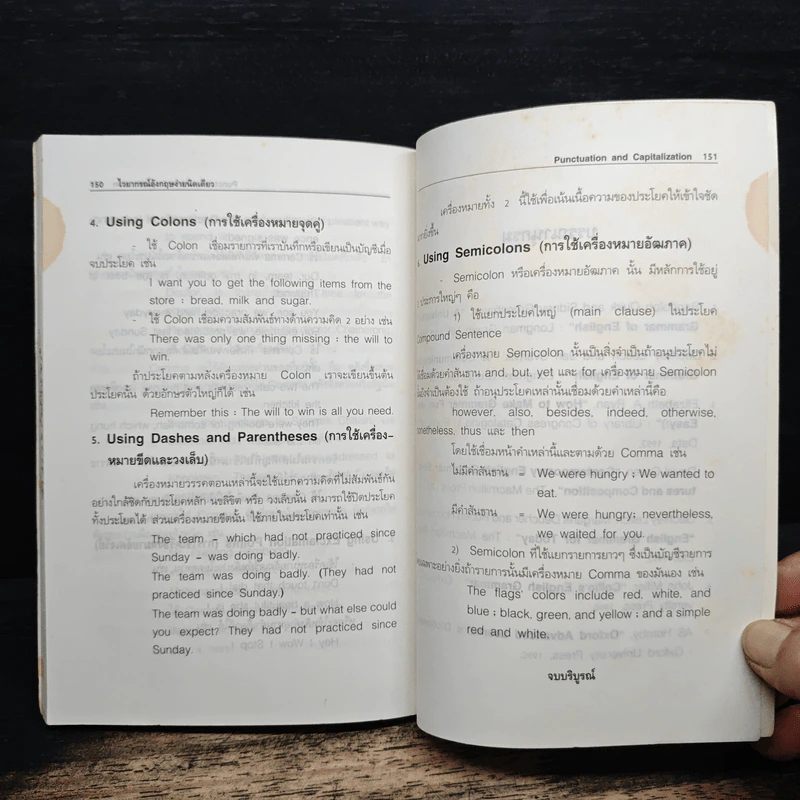 150 ไวยากรณ์อังกฤษง่ายนิดเดียว
4. Using Colons (การใช้เครื่องหมายจุดคู่)
- ใช้ Colon เชื่อมรายการที่เราบันทึกหรือเขียนเป็นบัญชีเมื่อ
จบประโยค เช่น
I want you to get the following items from the
store : bread, milk and sugar.
ใช้ Colon เชื่อมความสัมพันธ์ทางด้านความคิด 2 อย่าง เช่น
There was only one thing missing : the will to
win.
ถ้าประโยคตามหลังเครื่องหมาย Colon เราจะเขียนขึ้นต้น
ประโยคนั้น ด้วยอักษรตัวใหญ่ก็ได้ เช่น
Remember this : The will to win is all you need.
5. Using Dashes and Parentheses (การใช้เครื่อง-
หมายขีดและวงเล็บ)
เครื่องหมายวรรคตอนเหล่านี้จะใช้แยกความคิดที่ไม่สัมพันธ์กัน
อย่างใกล้ชิดกับประโยคหลัก นขลิขิต หรือ วงเล็บนั้น สามารถใช้ปิดประโยค
ทั้งประโยคได้ ส่วนเครื่องหมายขีดนั้น ใช้ภายในประโยคเท่านั้น เช่น
The team - which had not practiced since
Sunday - was doing badly.
The team was doing badly. (They had not
practiced since Sunday.)
The team was doing badly - but what else could
you expect? They had not practiced since
Sunday.
Punctuation and Capitalization 151
เครื่องหมายทั้ง 2 นี้ใช้เพื่อเน้นเนื้อความของประโยคให้เข้าใจชัด
ยิ่งขึ้น
Using Semicolons (การใช้เครื่องหมายอัฒภาค)
- Semicolon หรือเครื่องหมายอัฒภาค นั้น มีหลักการใช้อยู่
2 ประการใหญ่ๆ คือ
1) ใช้แยกประโยคใหญ่ (main clause) ในประโยค
Compound Sentence
เครื่องหมาย Semicolon นั้นเป็นสิ่งจำเป็นถ้าอนุประโยคไม่
เชื่อมด้วยคำสันธาน and, but, yet และ for เครื่องหมาย Semicolon
ยังจำเป็นต้องใช้ ถ้าอนุประโยคเหล่านั้นเชื่อมด้วยคำเหล่านี้คือ
however, also, besides, indeed, otherwise,
nonetheless, thus และ then
โดยใช้เชื่อมหน้าคำเหล่านี้และตามด้วย Comma เช่น
ไม่มีคำสันธาน = We were hungry ; We wanted to
eat.
มีคำสันธาน = We were hungry; nevertheless,
we waited for you.
2) Semicolon ที่ใช้แยกรายการยาวๆ ซึ่งเป็นบัญชีรายการ
เฉพาะอย่างยิ่งถ้ารายการนั้นมีเครื่องหมาย Comma ของมันเอง เช่น
The flags' colors include red, white, and
blue ; black, green, and yellow ; and a simple
red and white.
จบบริบูรณ์